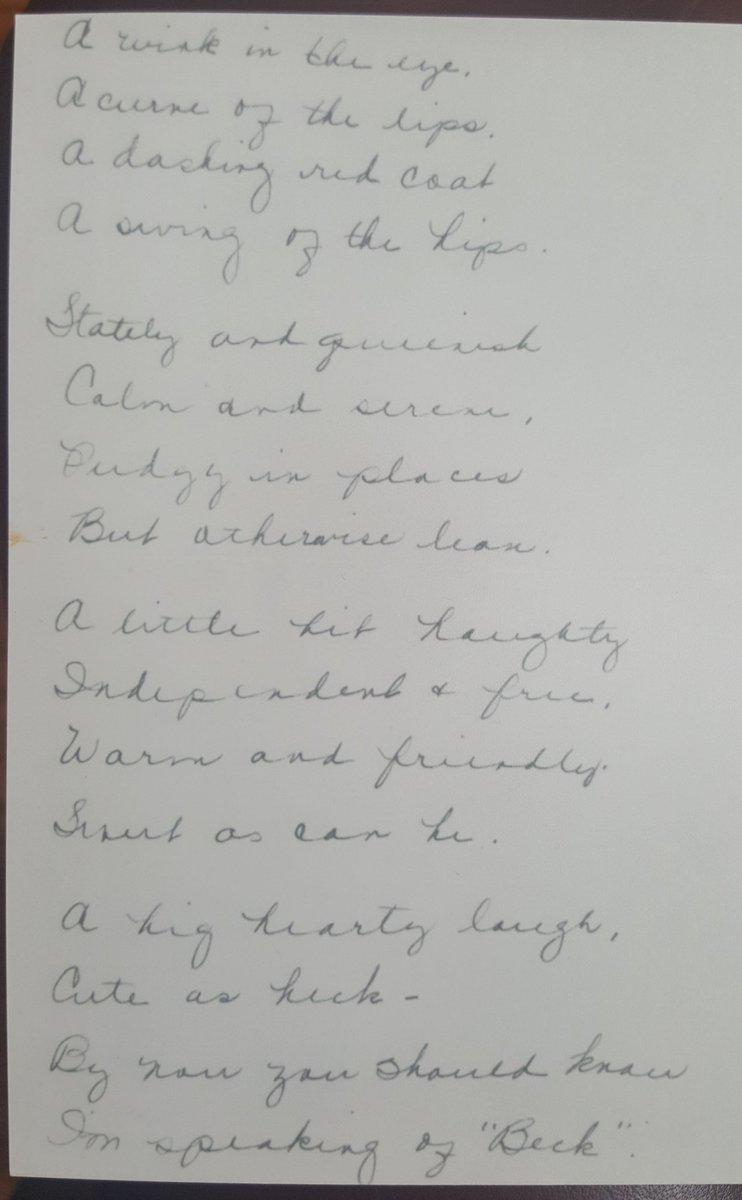 A wink in the eye,
A curve of the lips.
A dashing red coat
A swing of the hips.
Stately and queenish
Calm and serene,
Pudgy in places
But otherwise lean.
A little bit haughty
Independent & free,
Warm and friendly.
Smart as can be.
A big hearty laugh,
Cute as heck -
By now you should know
I'm speaking of "Beck".